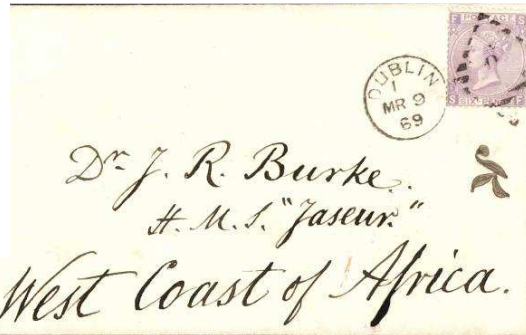 F POSTAGE S
S SIX PENCE F
DUBLIN
1
MR 9
69
Dr. J. R. Burke.
H. M. S. "Jaseur."
West Coast of Africa.